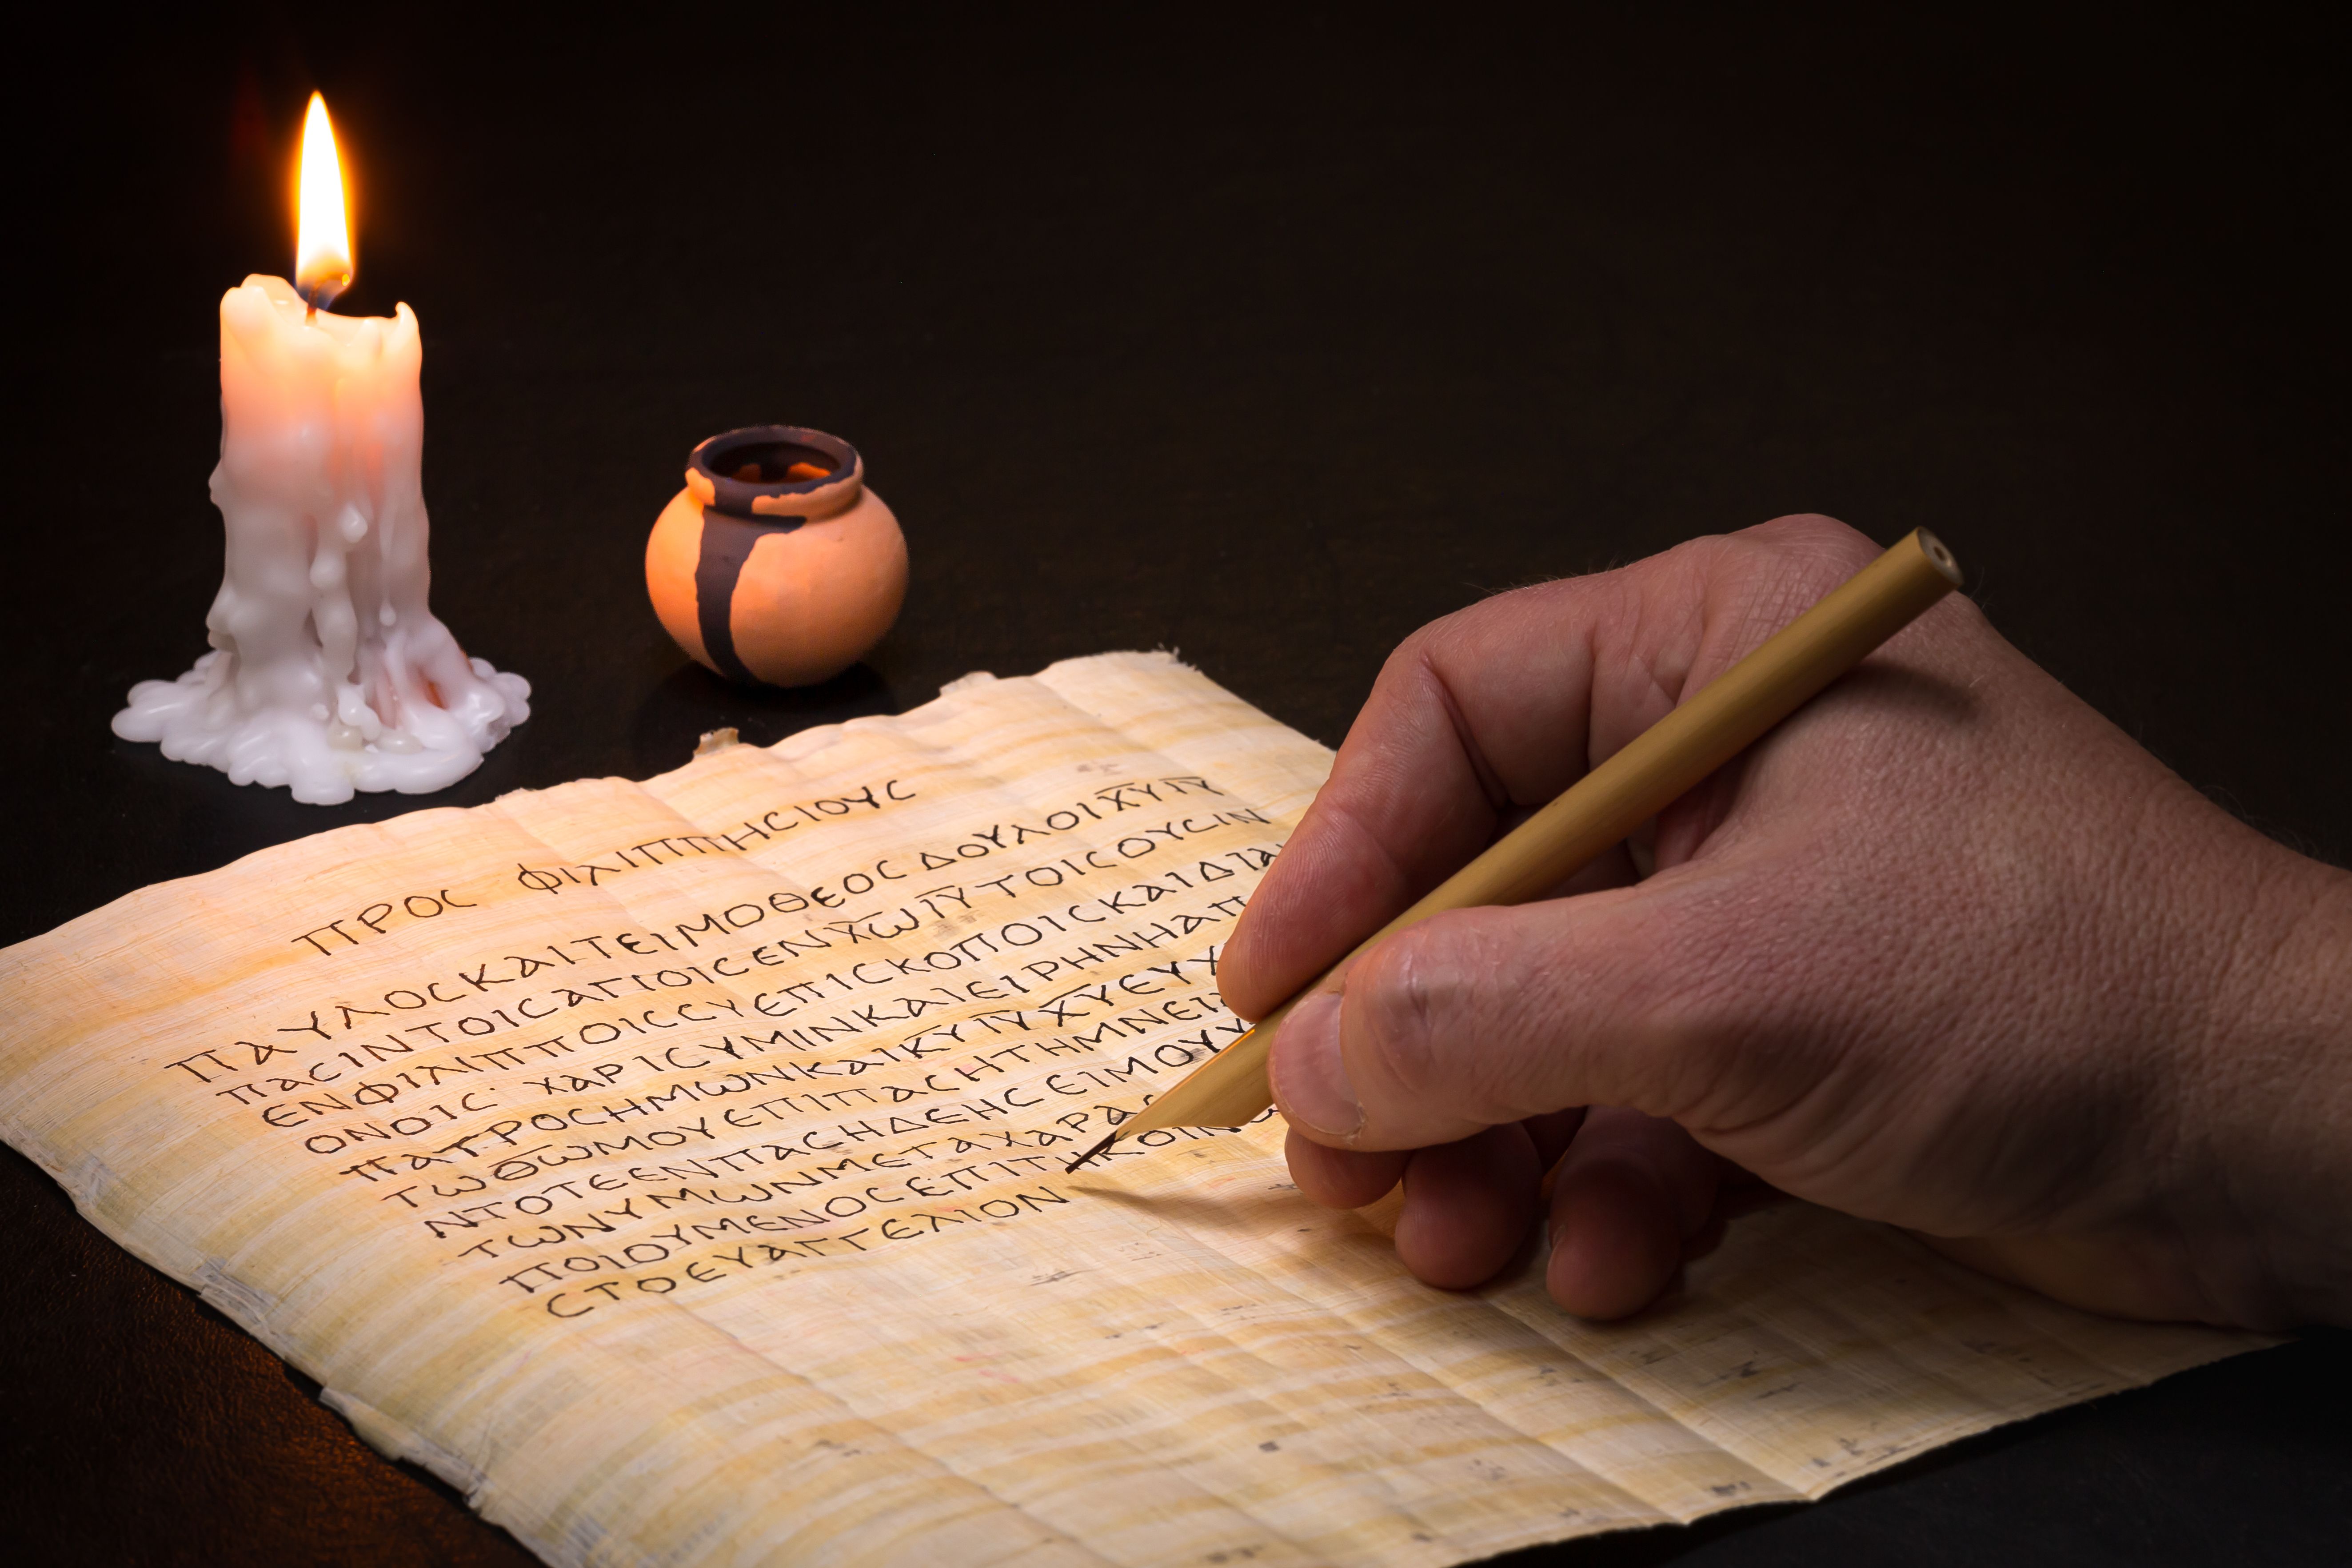 ΠΡΟC ΦΙΛΙΠΠΗCΙΟΥC
ΠΑΥΛΟCΚΑΙΤΕΙΜΟΘΕΟC ΔΟΥΛΟΙΧ̅Υ̅Ι̅Υ̅
ΠΑCΙΝΤΟΙCΑΓΙΟΙCΕΝΧ̅Ω̅Ι̅Υ̅ΤΟΙCΟΥCΙΝ
ΕΝΦΙΛΙΠΠΟΙCCΥΕΠΙCΚΟΠΟΙCΚΑΙΔΙΑ
ΟΝΟΙC· ΧΑΡΙCΥΜΙΝΚΑΙΕΙΡΗΝΗΑΠ
ΠΑΤΡΟCΗΜΩΝΚΑΙΚ̅Υ̅Ι̅Υ̅Χ̅Υ̅ΕΥΧ
ΤΩΘ̅Ω̅ΜΟΥΕΠΙΠΑCΗΤΗΜΝΕΙ
ΝΤΟΤΕΕΝΠΑCΗΔΕΗCΕΙΜΟΥΥ
ΤΩΝΥΜΩΝΜΕΤΑΧΑΡΑC
ΠΟΙΟΥΜΕΝΟCΕΠΙΤΗΚΟΙΝΩ
CΤΟΕΥΑΓΓΕΛΙΟΝ